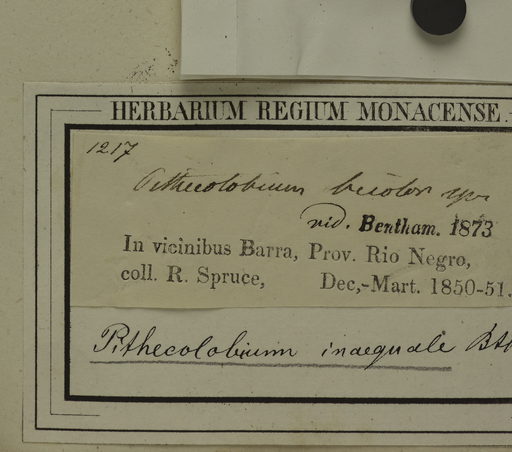 HERBARIUM REGIUM MONACENSE.
1217
Pithecolobium bicolor
vid. Bentham. 1873
In vicinibus Barra, Prov. Rio Negro,
coll. R. Spruce, Dec,-Mart. 1850-51.
Pithecolobium inaequale Bth